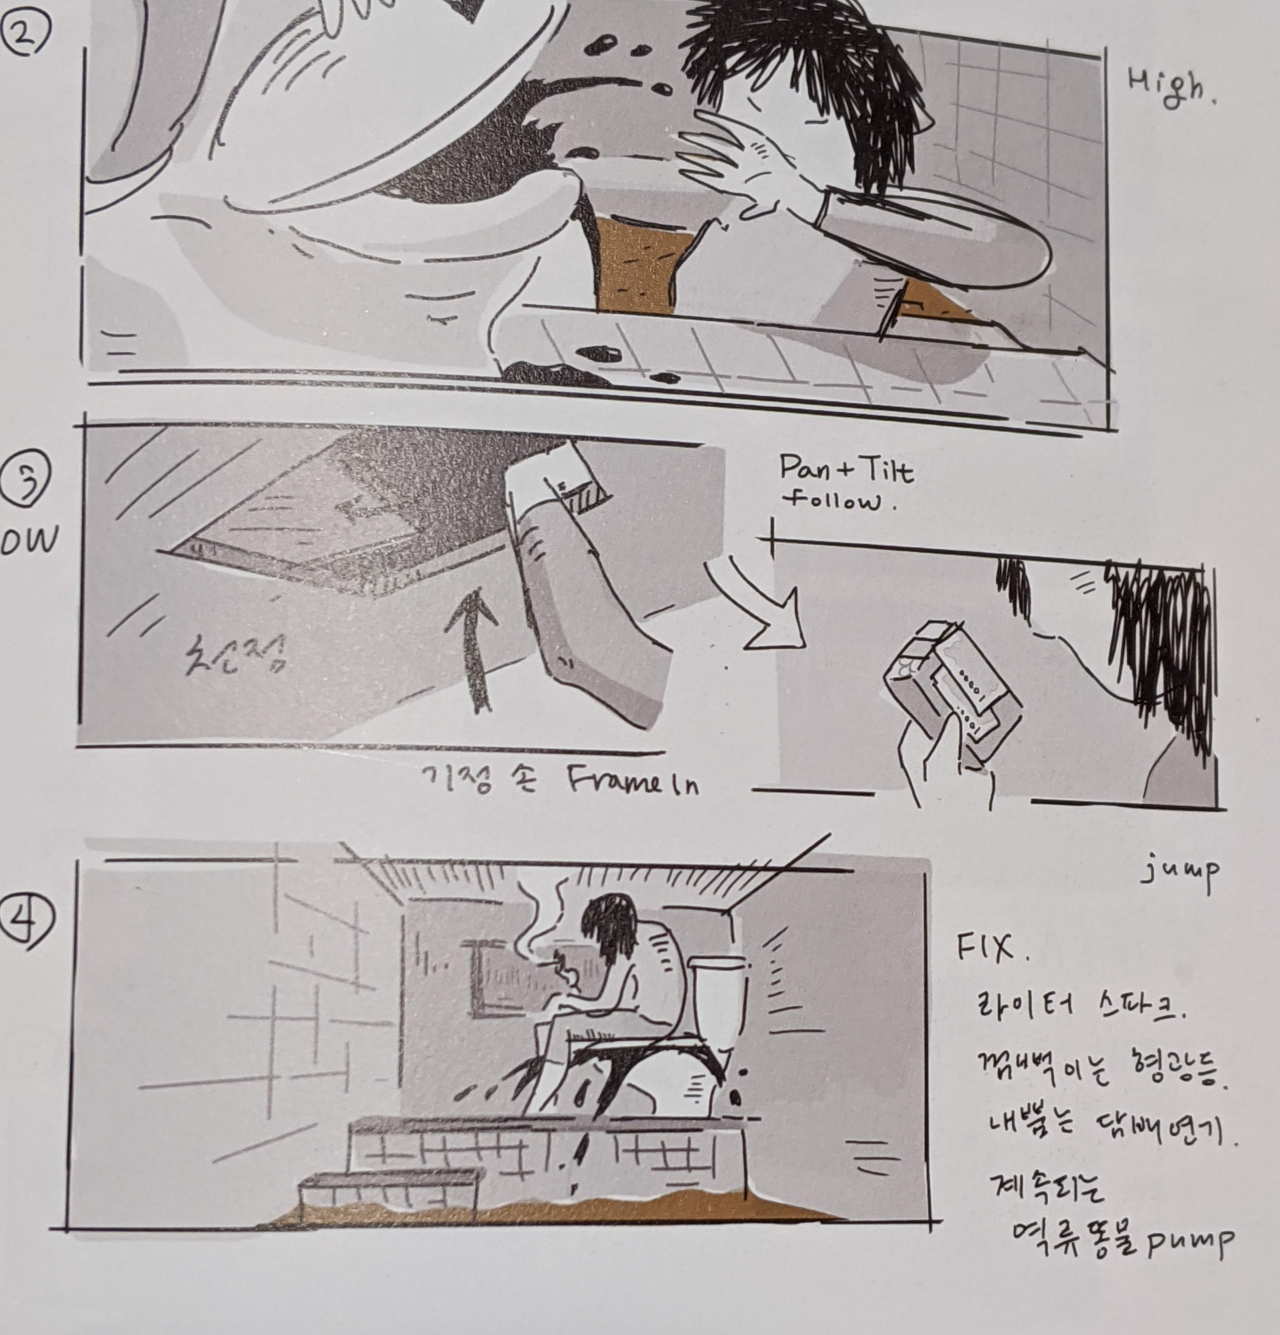 ②
High.
③
OW
Pan + Tilt
follow.
기정 손 Frame In
jump
④
FIX.
라이터 스파크.
껌벅이는 형광등.
내뿜는 담배연기.
계속되는
역류똥물 pump